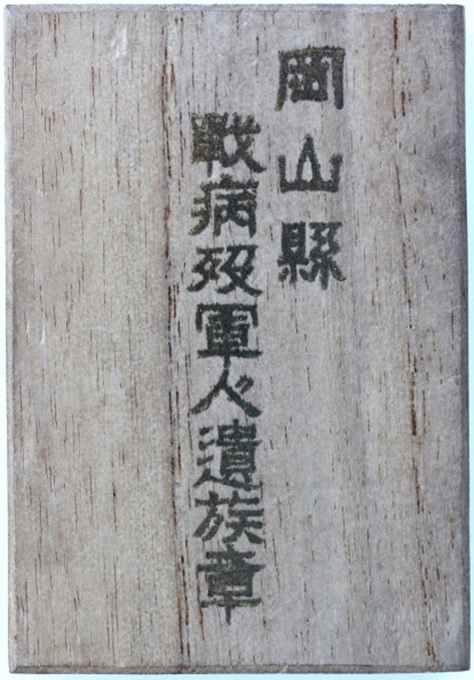 岡山縣
戰病歿軍人遺族章